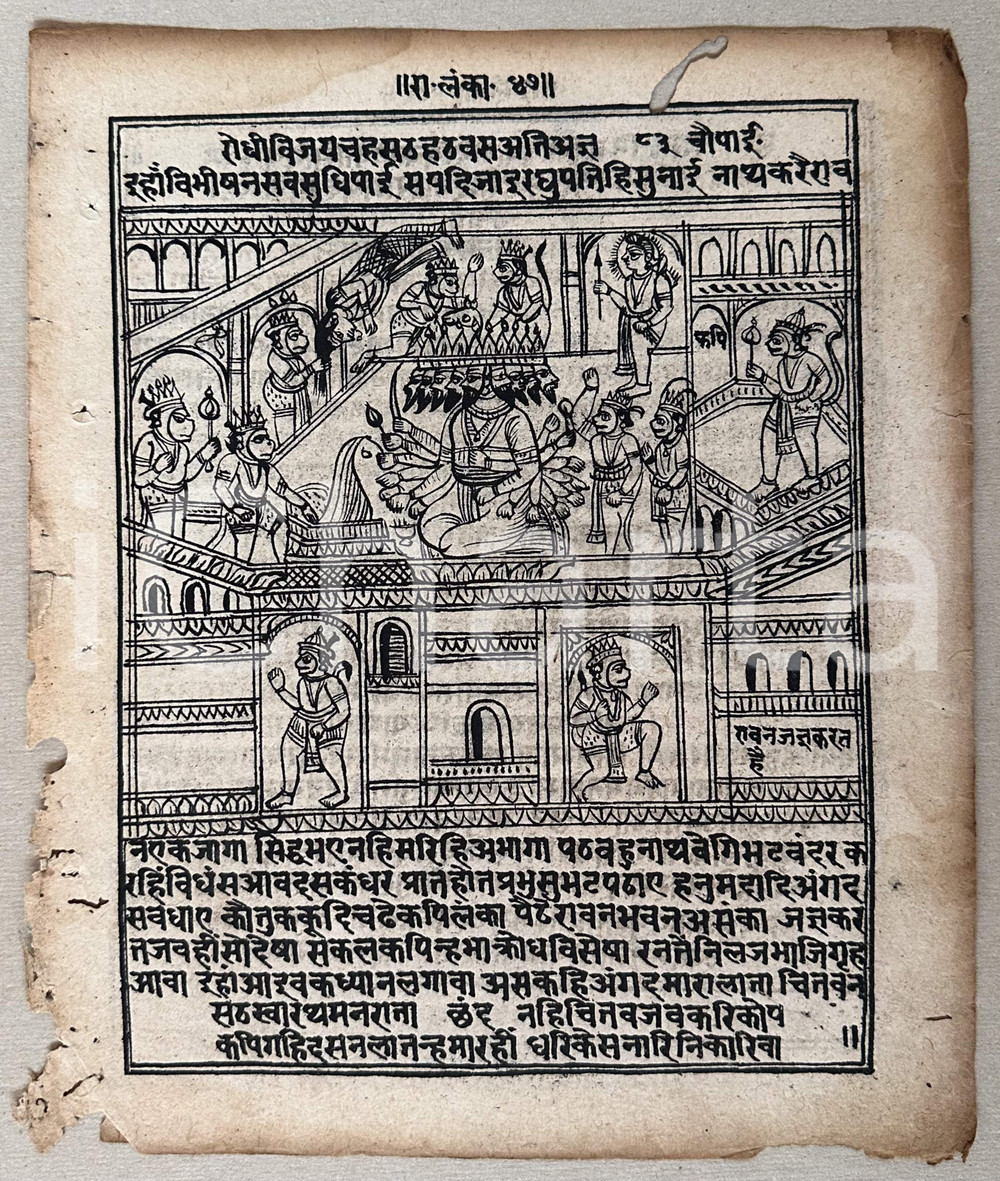 ॥रा·लंका· ४७॥
रोधीविजयचहसठहठवसअतिअज्ञ ८३ चौपाई·
इहांविभीषनसवसुधिपाई सपदिजाइरघुपतिहिसुनाई नाथकरैराव
कपि
रावनजज्ञकरत
है
नएकजागा सिद्धभएनहिमरिहिअभागा पठवहुनाथवेगिभटवंदर क
रहिंविधंसआवदसकंधर प्रातहोतप्रभुसुभटपठाए हनुमदादिअंगद
सवधाए कौतुककूदिचढेकपिलंका पैठेरावनभवनअसंका जज्ञकर
तजवहींसोदेषा सकलकपिन्हभाक्रोधविसेषा रनतेनिलजभाजिगृह
आवा इहांआइवकध्यानलगावा असकहिअंगदमारालाता चितवन
सठस्वारथमनराता छंद नहिचितवजवकरिकोप
कपिगहिदसनलातन्हमारहीं धरिकेसनारिनिकारिवा ॥